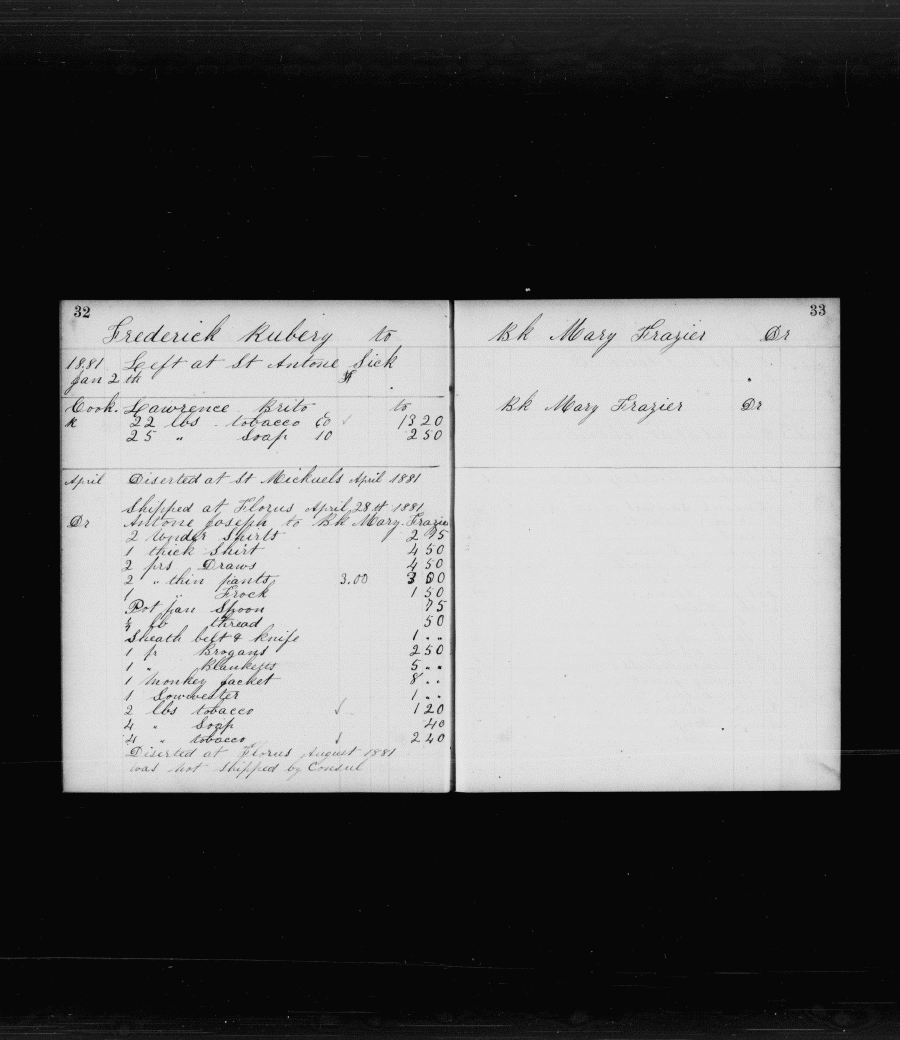 32
Frederick Rubery to
1881 Left at St Antone Sick
Jan 2 th
Cook. Lawrence Brito to
22 lbs tobacco 60 13 20
25 " Soap 10 2 50
April Diserted at St Michaels April 1881
Shipped at Florus April 28th 1881
Dr Antone Joseph to Bk Mary Frazier
2 Under Shirts 2 75
1 thick Shirt 4 50
2 prs Draws 4 50
2 " thin pants 3.00 3 00
1 " Frock 1 50
Pot pan Spoon 75
lb thread 50
Sheath belt & knife 1 ..
1 pr Brogans 2 50
1 " Blankets 5 ..
1 Monkey Jacket 8 ..
1 Sowwester 1 ..
2 lbs tobacco 1 20
4 " Soap 40
4 " tobacco 2 40
Diserted at Florus August 1881
was not Shipped by Consul
33
Bk Mary Frazier Dr
Bk Mary Frazier Dr